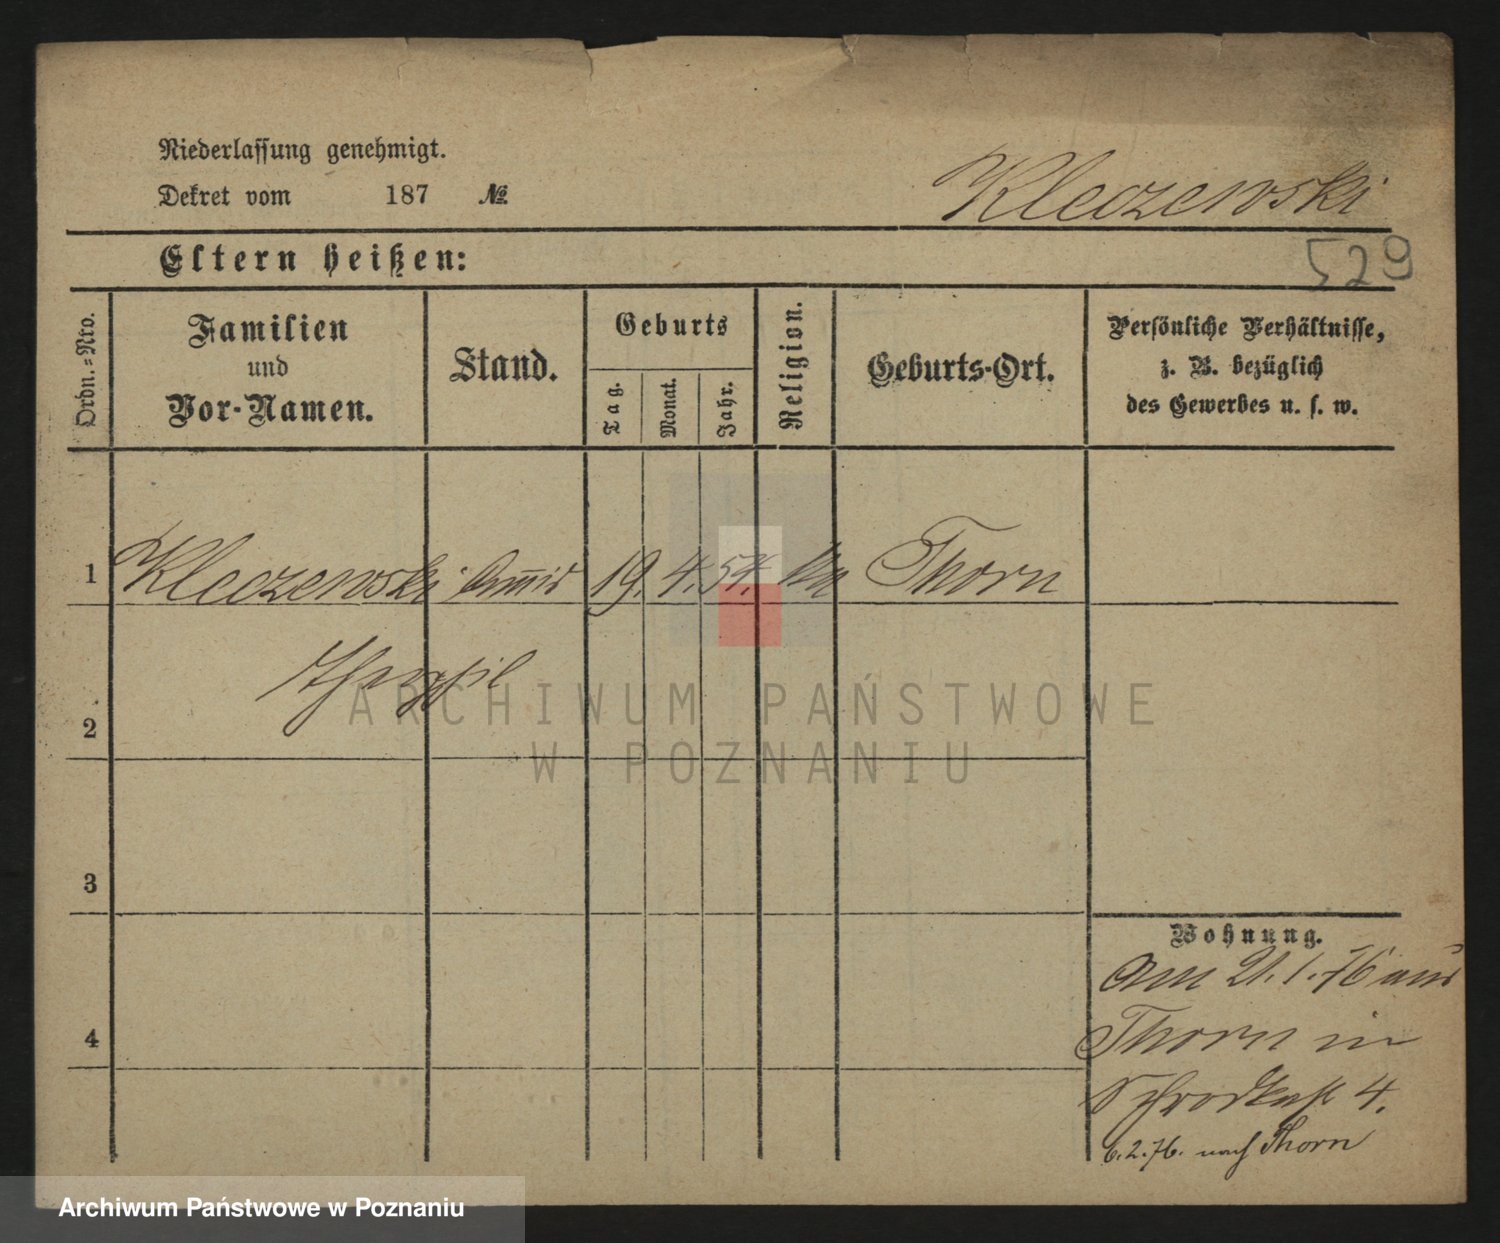 Niederlassung genehmigt.
Dekret vom 187 №
Kleczewski
529
Eltern heißen:
Ordn.=Nro.
Familien
und
Vor-Namen.
Stand.
Geburts
Tag.
Monat.
Jahr.
Religion.
Geburts-Ort.
Persönliche Verhältnisse,
z. B. bezüglich
des Gewerbes u. s. w.
1 Kleczewski 19. 4. 54. Thorn
Theophil
2
3
4
Wohnung.
Am 21.1.76 aus
Thorn in
4.
6.2.76. nach Thorn
ARCHIWUM PAŃSTWOWE
W POZNANIU
Archiwum Państwowe w Poznaniu